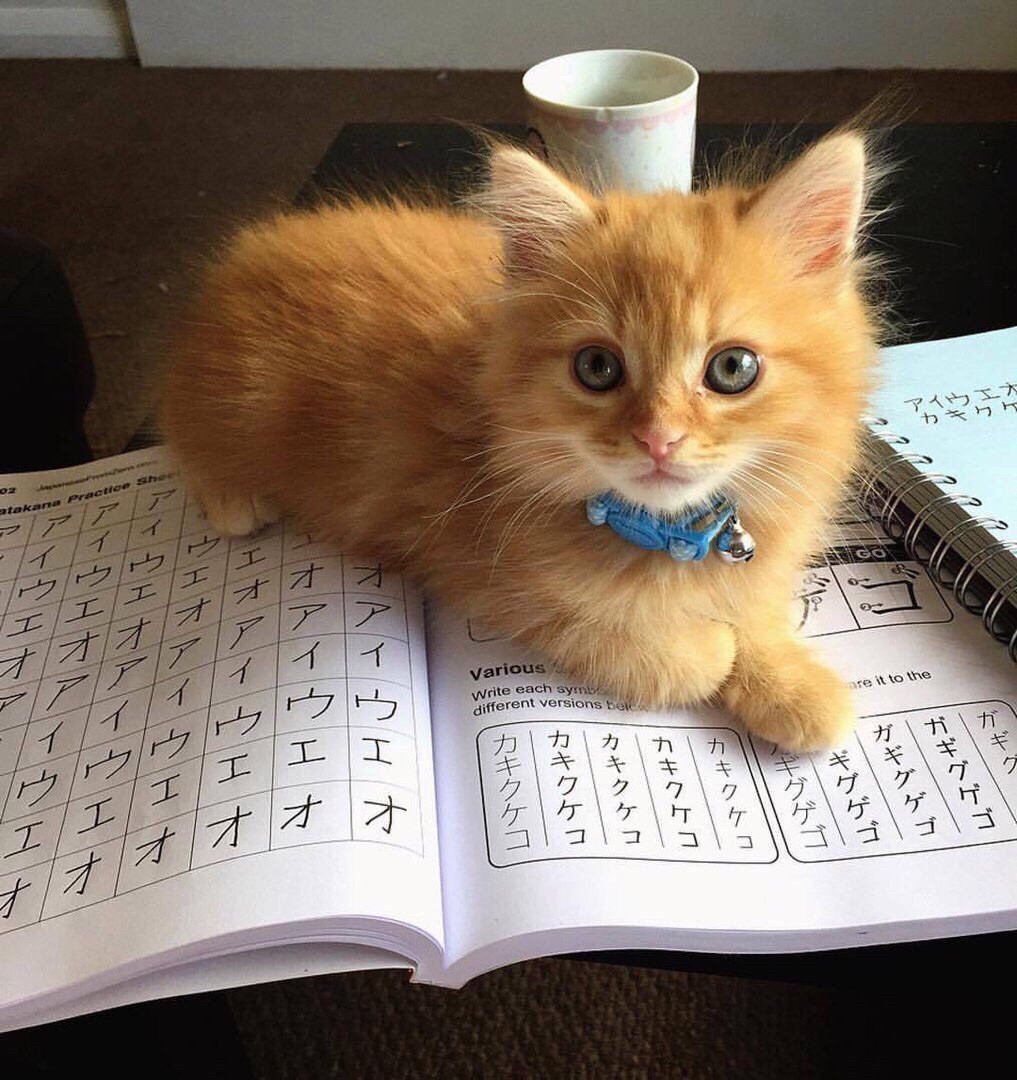 02 JapaneseFromZero.com
atakana Practice Shee
ア ア ア ア
イ イ イ
ウ ウ ウ ウ
エ エ エ エ エ エ
オ オ オ オ オ オ オ
ア ア ア ア ア ア ア
イ イ イ イ イ イ
ウ ウ ウ ウ ウ ウ
エ エ エ エ エ エ
オ オ オ オ オ オ
アイウエオ
カキクケ
GO
Various
Write each are it to the
different versions
カ カ カ カ カ
キ キ キ キ キ
ク ク ク ク ク
ケ ケ ケ ケ ケ
コ コ コ コ コ
ガ ガ ガ ガ
ギ ギ ギ ギ ギ
グ グ グ グ グ
ゲ ゲ ゲ ゲ
ゴ ゴ ゴ ゴ